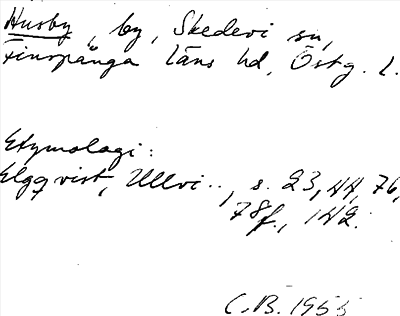 Husby, by, Skedevi sn,
Finspånga läns hd, Östg. l.
Etymologi:
Elgqvist, Ullvi.., s. 23, 44, 76,
78f., 142.
C.B. 1955